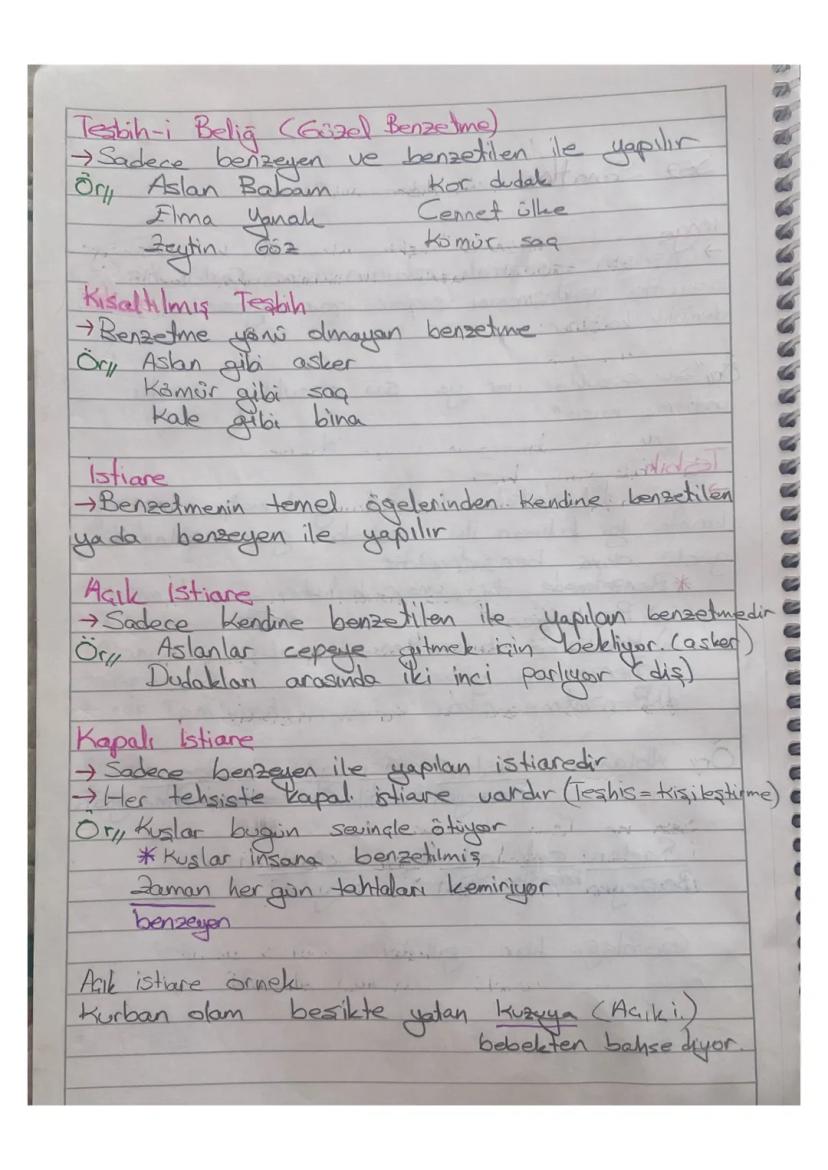 Teşbih-i Beliğ (Güzel Benzetme)
→ Sadece benzeyen ve benzetilen ile yapılır
Ör// Aslan Babam Kor dudak
Elma yanak Cennet ülke
Zeytin Göz Kömür saç
Kısaltılmış Teşbih
→ Benzetme yönü olmayan benzetme
Ör// Aslan gibi asker
Kömür gibi saç
Kale gibi bina
İstiare
→ Benzetmenin temel ögelerinden kendine benzetilen
yada benzeyen ile yapılır
Açık istiare
→ Sadece kendine benzetilen ile yapılan benzetmedir
Ör// Aslanlar cepeye gitmek için bekliyor. (asker)
Dudakları arasında iki inci parlıyor (diş)
Kapalı istiare
→ Sadece benzeyen ile yapılan istiaredir
→ Her tehsiste kapalı istiare vardır (Teşhis = kişileştirme)
Ör// Kuşlar bugün sevinçle ötüyor
* Kuşlar insana benzetilmiş
Zaman her gün tahtaları kemiriyor
benzeyen
Açık istiare örnek
Kurban olam beşikte yatan kuzuya (Açık i.)
bebekten bahsediyor.